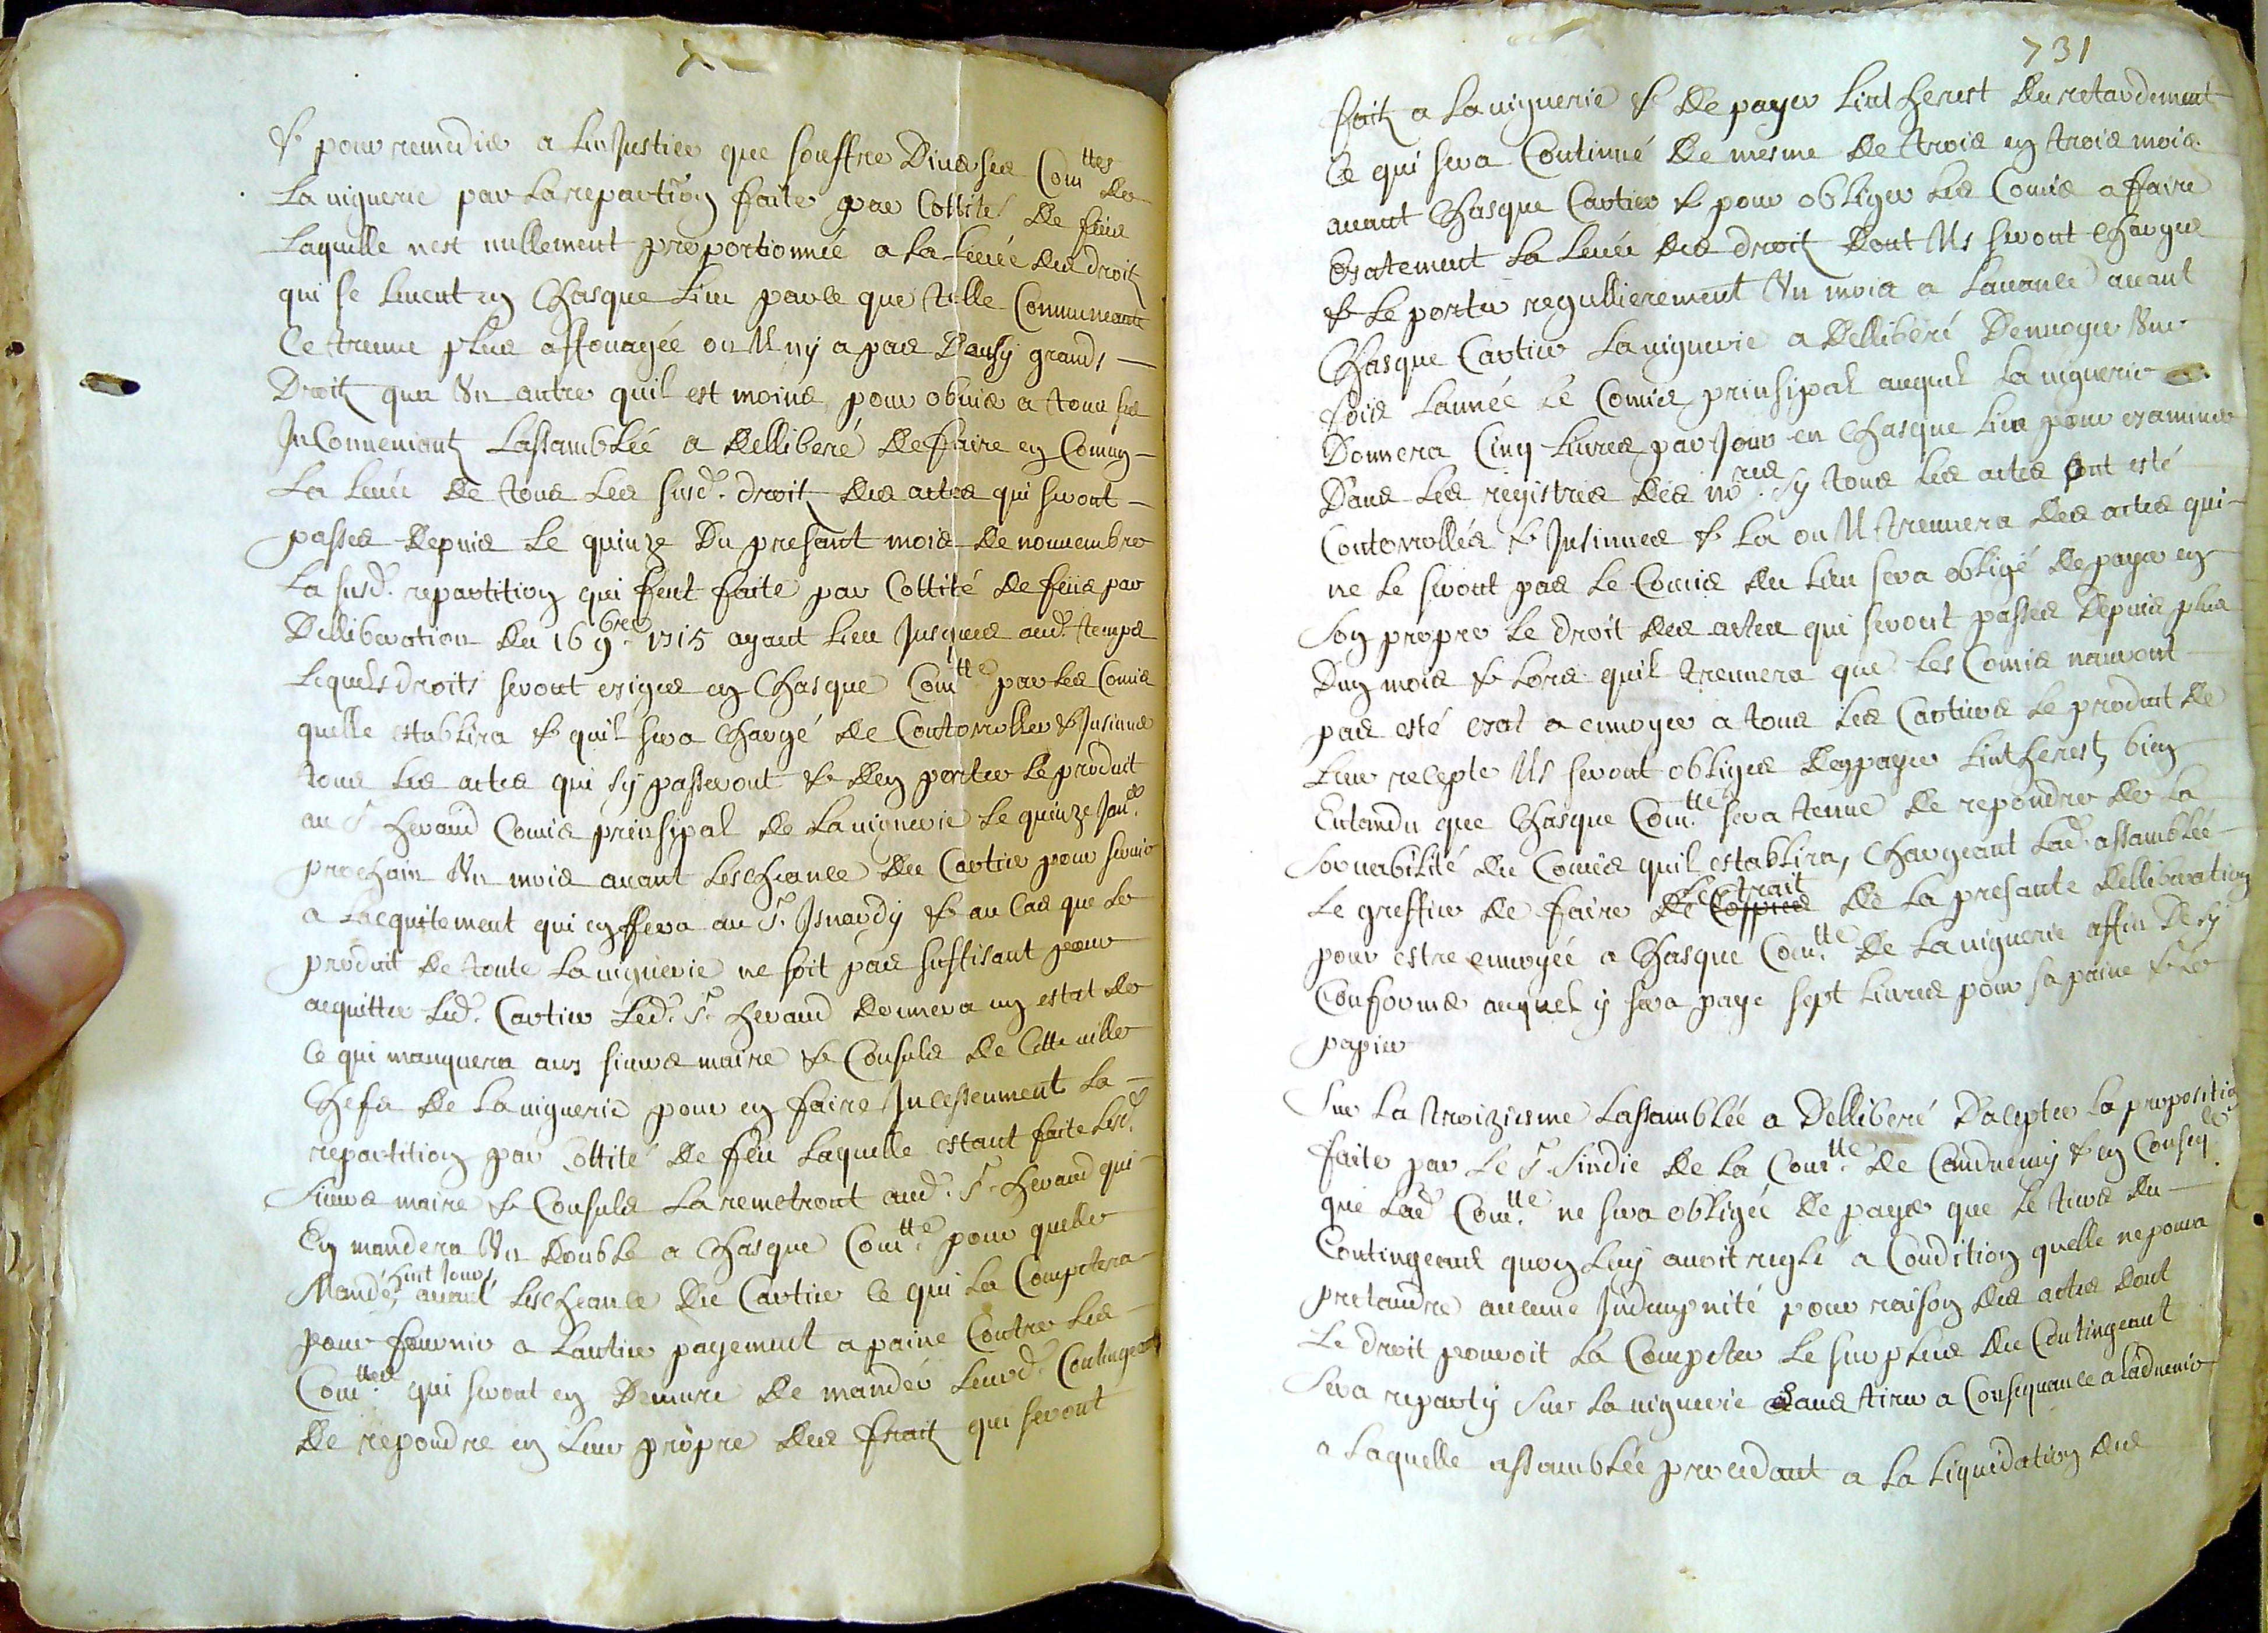 & pour remedier a linjustice que souffre Diverses Com.ttes de
La viguerie par La repartition faite par Cottité De feus
Laquelle nest nullement proportionnée a La Levée des droitz
qui se Levent en Chasque Lieu parce que telle Communeauté
Ce treuve plus affouagée ou Il ny a pas D'ausy grands
Droitz qua Un autre quil est moins, pour obvier a tous ses
InConveniantz Lassamblée a Delliberé De faire en Comung
La Levée De tous Les susd. droitz des actes qui seront
passes Depuis Le quinze Du presant mois De nouvembre
La susd. repartition qui feut faite par Cottité De feus par
Delliberation du 16 9.bre 1715 ayant Lieu Jusques aud. temps
Lesquels droits seront exiges en Chasque Com.tte par Les Comis
quelle establira & quil sera Chargé de Contorroller & Insinuer
tous Les actes qui sy passeront & den porter Le produit
au S.r heraud Comis prinsipal de La viguerie Le quinze Jan.er
prochain Un mois avant Lescheance du Cartier pour servir
a Lacquitement qui en sera au S.r Isnardy & au Cas que Le
produit de toute La viguerie ne soit pas suffisant pour
acquitter Led. Cartier Led. S.r heraud donnera un estat de
Ce qui manquera aux sieurs maire & Consuls de Cette ville
Chefs de La viguerie pour en faire Incessenment La
repartition par Cottité De feu Laquelle estant faite Lesd.
Sieurs maire & Consuls La remetront aud. S.r heraud qui
En mandera Un Double a Chasque Com.tte pour quelle
Mande, huit Jours avant Lescheance du Cartier Ce qui La Compettera
pour fournir a Lantier payement a paine Contre Les
Com.ttes qui seront en Demure de mander Leurd. Contingeant
De repondre en Leur propre des fraitz qui seront
731
faitz a La viguerie & De payer Lintherest Du retardement
Ce qui sera Continué De mesme De trois en trois mois
avant Chasque Cartier & pour obliger Les Comis a faire
Exatement La Levée des droitz Dont Ils seront Charges
& Le porter regullierement Un mois a Lavance avant
Chasque Cartier La viguerie a Delliberé Denvoyer Une
fois Lannée Le Comis prinsipal auquel La viguerie
Donnera Cinq Livres par Jour en Chasque Lieu pour examiner
Dans Les registres des no.res sy tous Les actes ont esté
Contorrollés & Insinues & La ou Il treuvera des actes qui
ne Le seront pas Le Comis du Lieu sera obligé De payer en
Son propre Le droit des actes qui seront passes Depuis plus
Dun mois & Lors quil treuvera que Les Comis nauront
pas esté exat a envoyer a tous Les Cartiers Le produit de
Leur recepte Ils seront obliges den payer Lintherestz bien
Entandu que Chasque Com.tte sera tenue De repondre de La
Sorvabilité du Comis quil establira, Chargeant Lad. assamblée
Le greffier de faire De Coppies Lextrait de La presante delliberation
pour estre envoyée a Chasque Com.tte De La viguerie affin De sy
Conformer auquel y sera paye sept Livres pour sa paine & Le
papier
Sur La troiziesme Lassamblée a Delliberé Dacepter La proposition
faite par Le S.r Sindic de La Com.tte De Canduemy & en Conseq.ce
que Lad. Com.tte ne sera obligée De payer que Le tiers du
Contingeant quon Luy avoit reglé a Condition quelle ne poura
pretandre aucune Indempnité pour raison des actes dont
Le droit pouvoit La Competer Le surplus du Contingeant
Sera reparty sur La viguerie Sans tirer a Consequance a Ladvenir
a Laquelle assamblée procedant a La Liquidation des